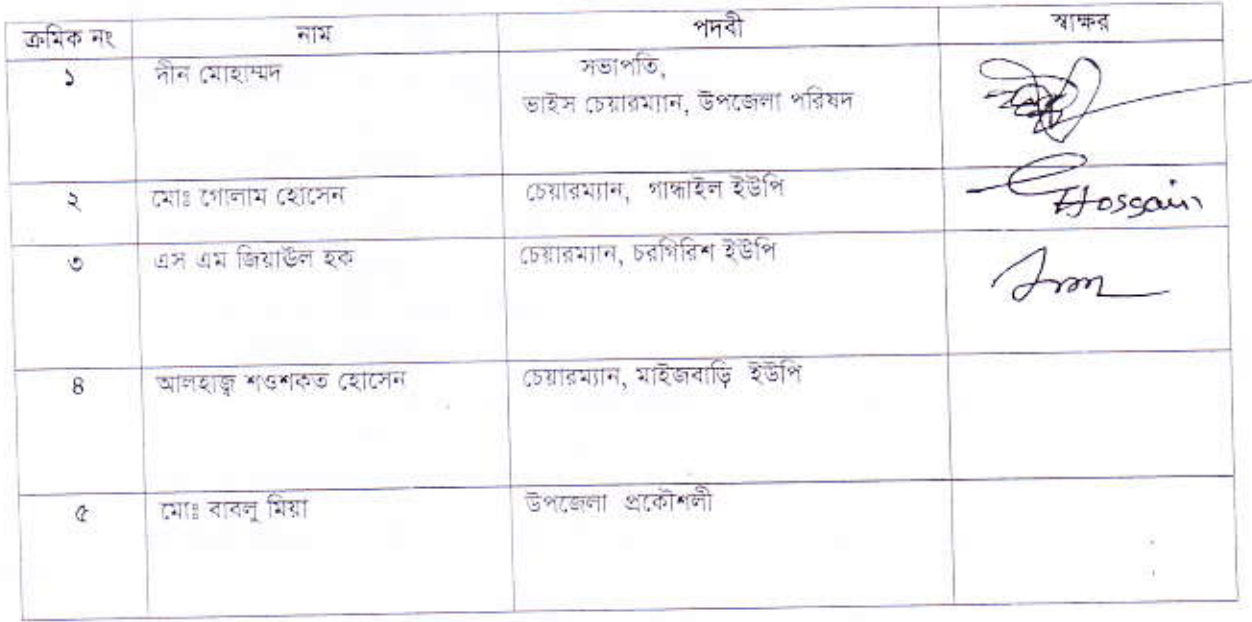 ক্রমিক নং নাম পদবী স্বাক্ষর
১ দীন মোহাম্মদ সভাপতি,
ভাইস চেয়ারম্যান, উপজেলা পরিষদ
২ মোঃ গোলাম হোসেন চেয়ারম্যান, গান্ধাইল ইউপি Hossain
৩ এস এম জিয়াউল হক চেয়ারম্যান, চরগিরিশ ইউপি
৪ আলহাজ্ব শওশকত হোসেন চেয়ারম্যান, মাইজবাড়ি ইউপি
৫ মোঃ বাবলু মিয়া উপজেলা প্রকৌশলী